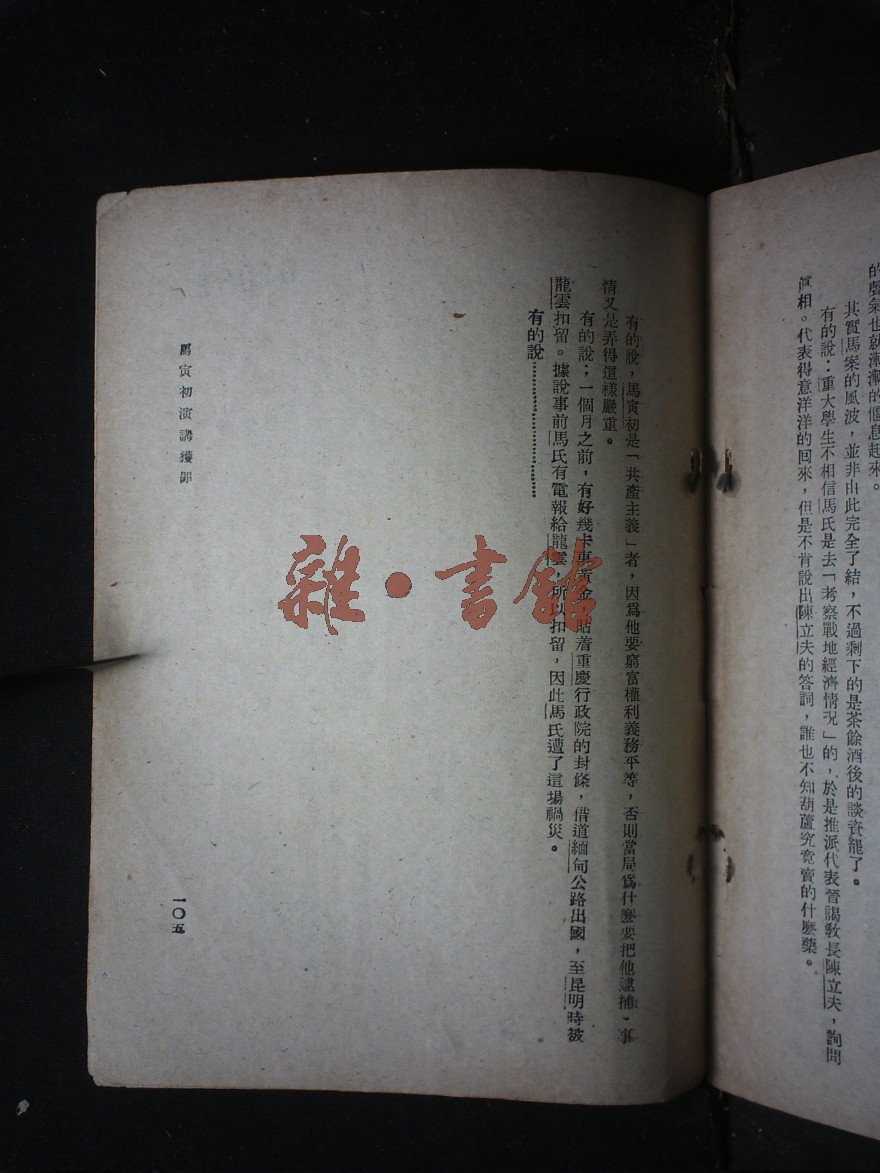 的聲氣也就漸漸的偃息起來。
其實馬案的風波，並非由此完全了結，不過剩下的是茶餘酒後的談資罷了。
有的說：重大學生不相信馬氏是去「考察戰地經濟情況」的，於是推派代表晉謁敎長陳立夫，詢問
眞相。代表得意洋洋的回來，但是不肯說出陳立夫的答詞，誰也不知葫蘆究竟賣的什麼藥。
有的說，馬寅初是「共產主義」者，因爲他要窮富權利義務平等，否則當局爲什麼要把他逮捕，事
情又是弄得這樣嚴重。
有的說；一個月之前，有好幾卡車黃金，貼着重慶行政院的封條，借道緬甸公路出國，至昆明時被
龍雲扣留。據說事前馬氏有電報給龍雲，所以扣留，因此馬氏遭了這場禍災。
有的說………………………
馬寅初演講獲卽
一〇五
雜·書館